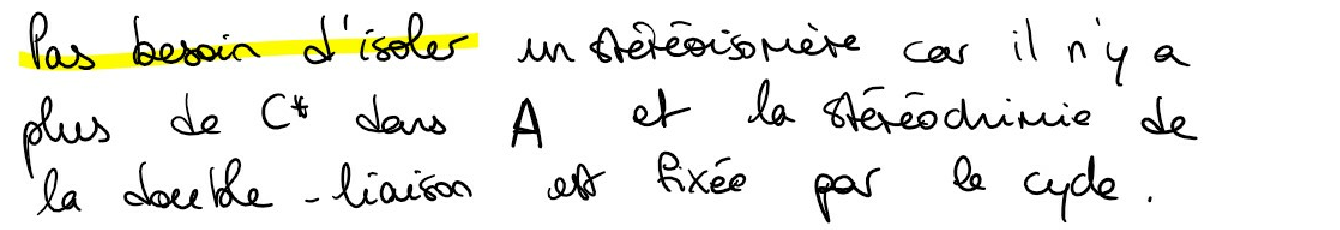 Pas besoin d'isoler un stéréoisomère car il n'y a
plus de C* dans A et la stéréochimie de
la double-liaison est fixée par le cycle.